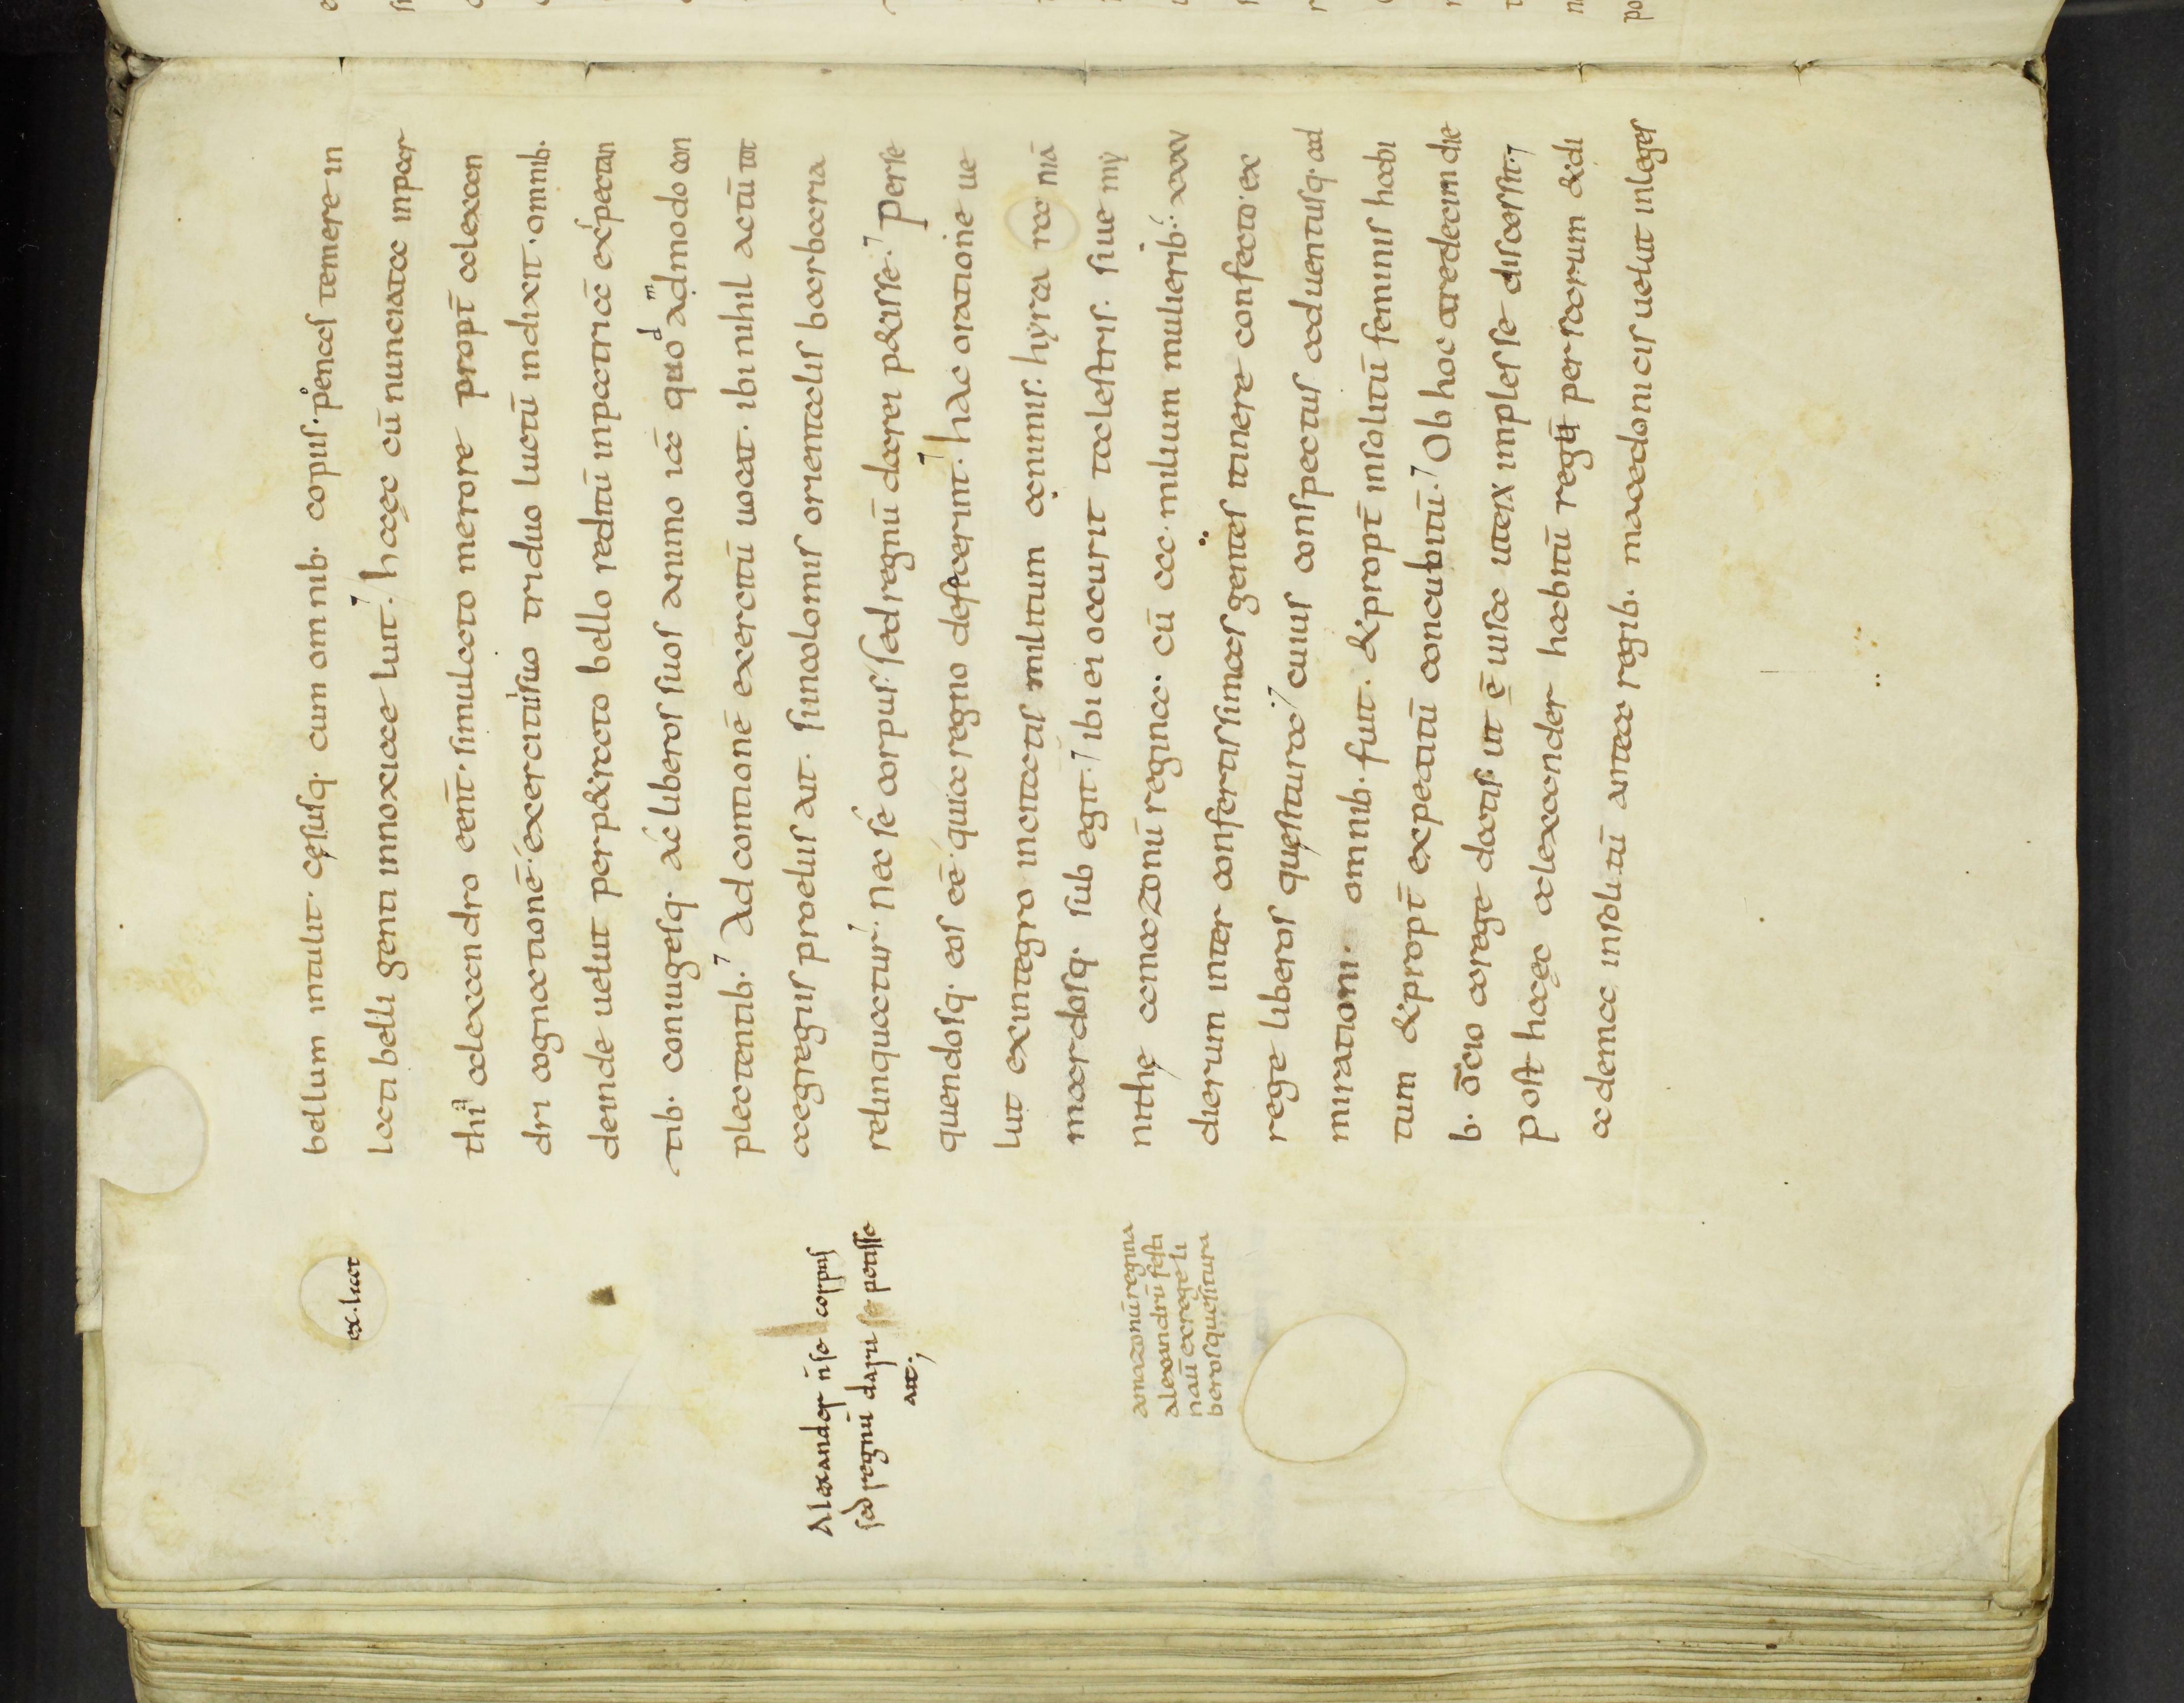 bellum intulit. cęsusq. cum omnib. copiis. pęnas temere in
lati belli genti innoxiae luit. haęc cū nunciata inpar
thia alexandro eēnt. simulato merore propt̄ alexan
dri cognationē. exercitui suo triduo luctū indixit. omnib.
deinde uelut perp&rato bello reditū inpatriā expectan
tib. coniugesq. ac liberos suos animo iā quodāmmodo con
plectentib. Ad contionē exercitū uocat. ibi nihil actū tot
aegregiis proeliis ait. si incolomis orientalis barbaria
relinquatur. Nec se corpus. sed regnū darei p&isse. Perse
quendosq. eos eē. qui a regno defecerint. hac oratione ue
lut exintegro incitatis militum animis. hyrcaniā
mardosq. sub egit. ibi ei occurit talestris. siue my
nithę amazonū regina. cū ccc. milium mulierib. xxxv
dierum inter confertissimas gentes itinere confecto. ex
rege liberos quęsitura. cuius conspectus aduentusq. ad
mirationi. omnib. fuit. & propt̄ insolitū feminis habi
tum & propt̄ expeatitū concubitū. Ob hoc aredecim die
b. ōcio arege datis. ut ē uisa uterū implesse discessit.
Post haęc alexander habitū regū persarum & di
adema insolitū antea regib. macedonicis uelut inleges
Alexander n̄ se corpus
sed regnū darii se petisse
ait.
amazonū regina
alexandrū festi
nauī ex rege li
beros quesitura